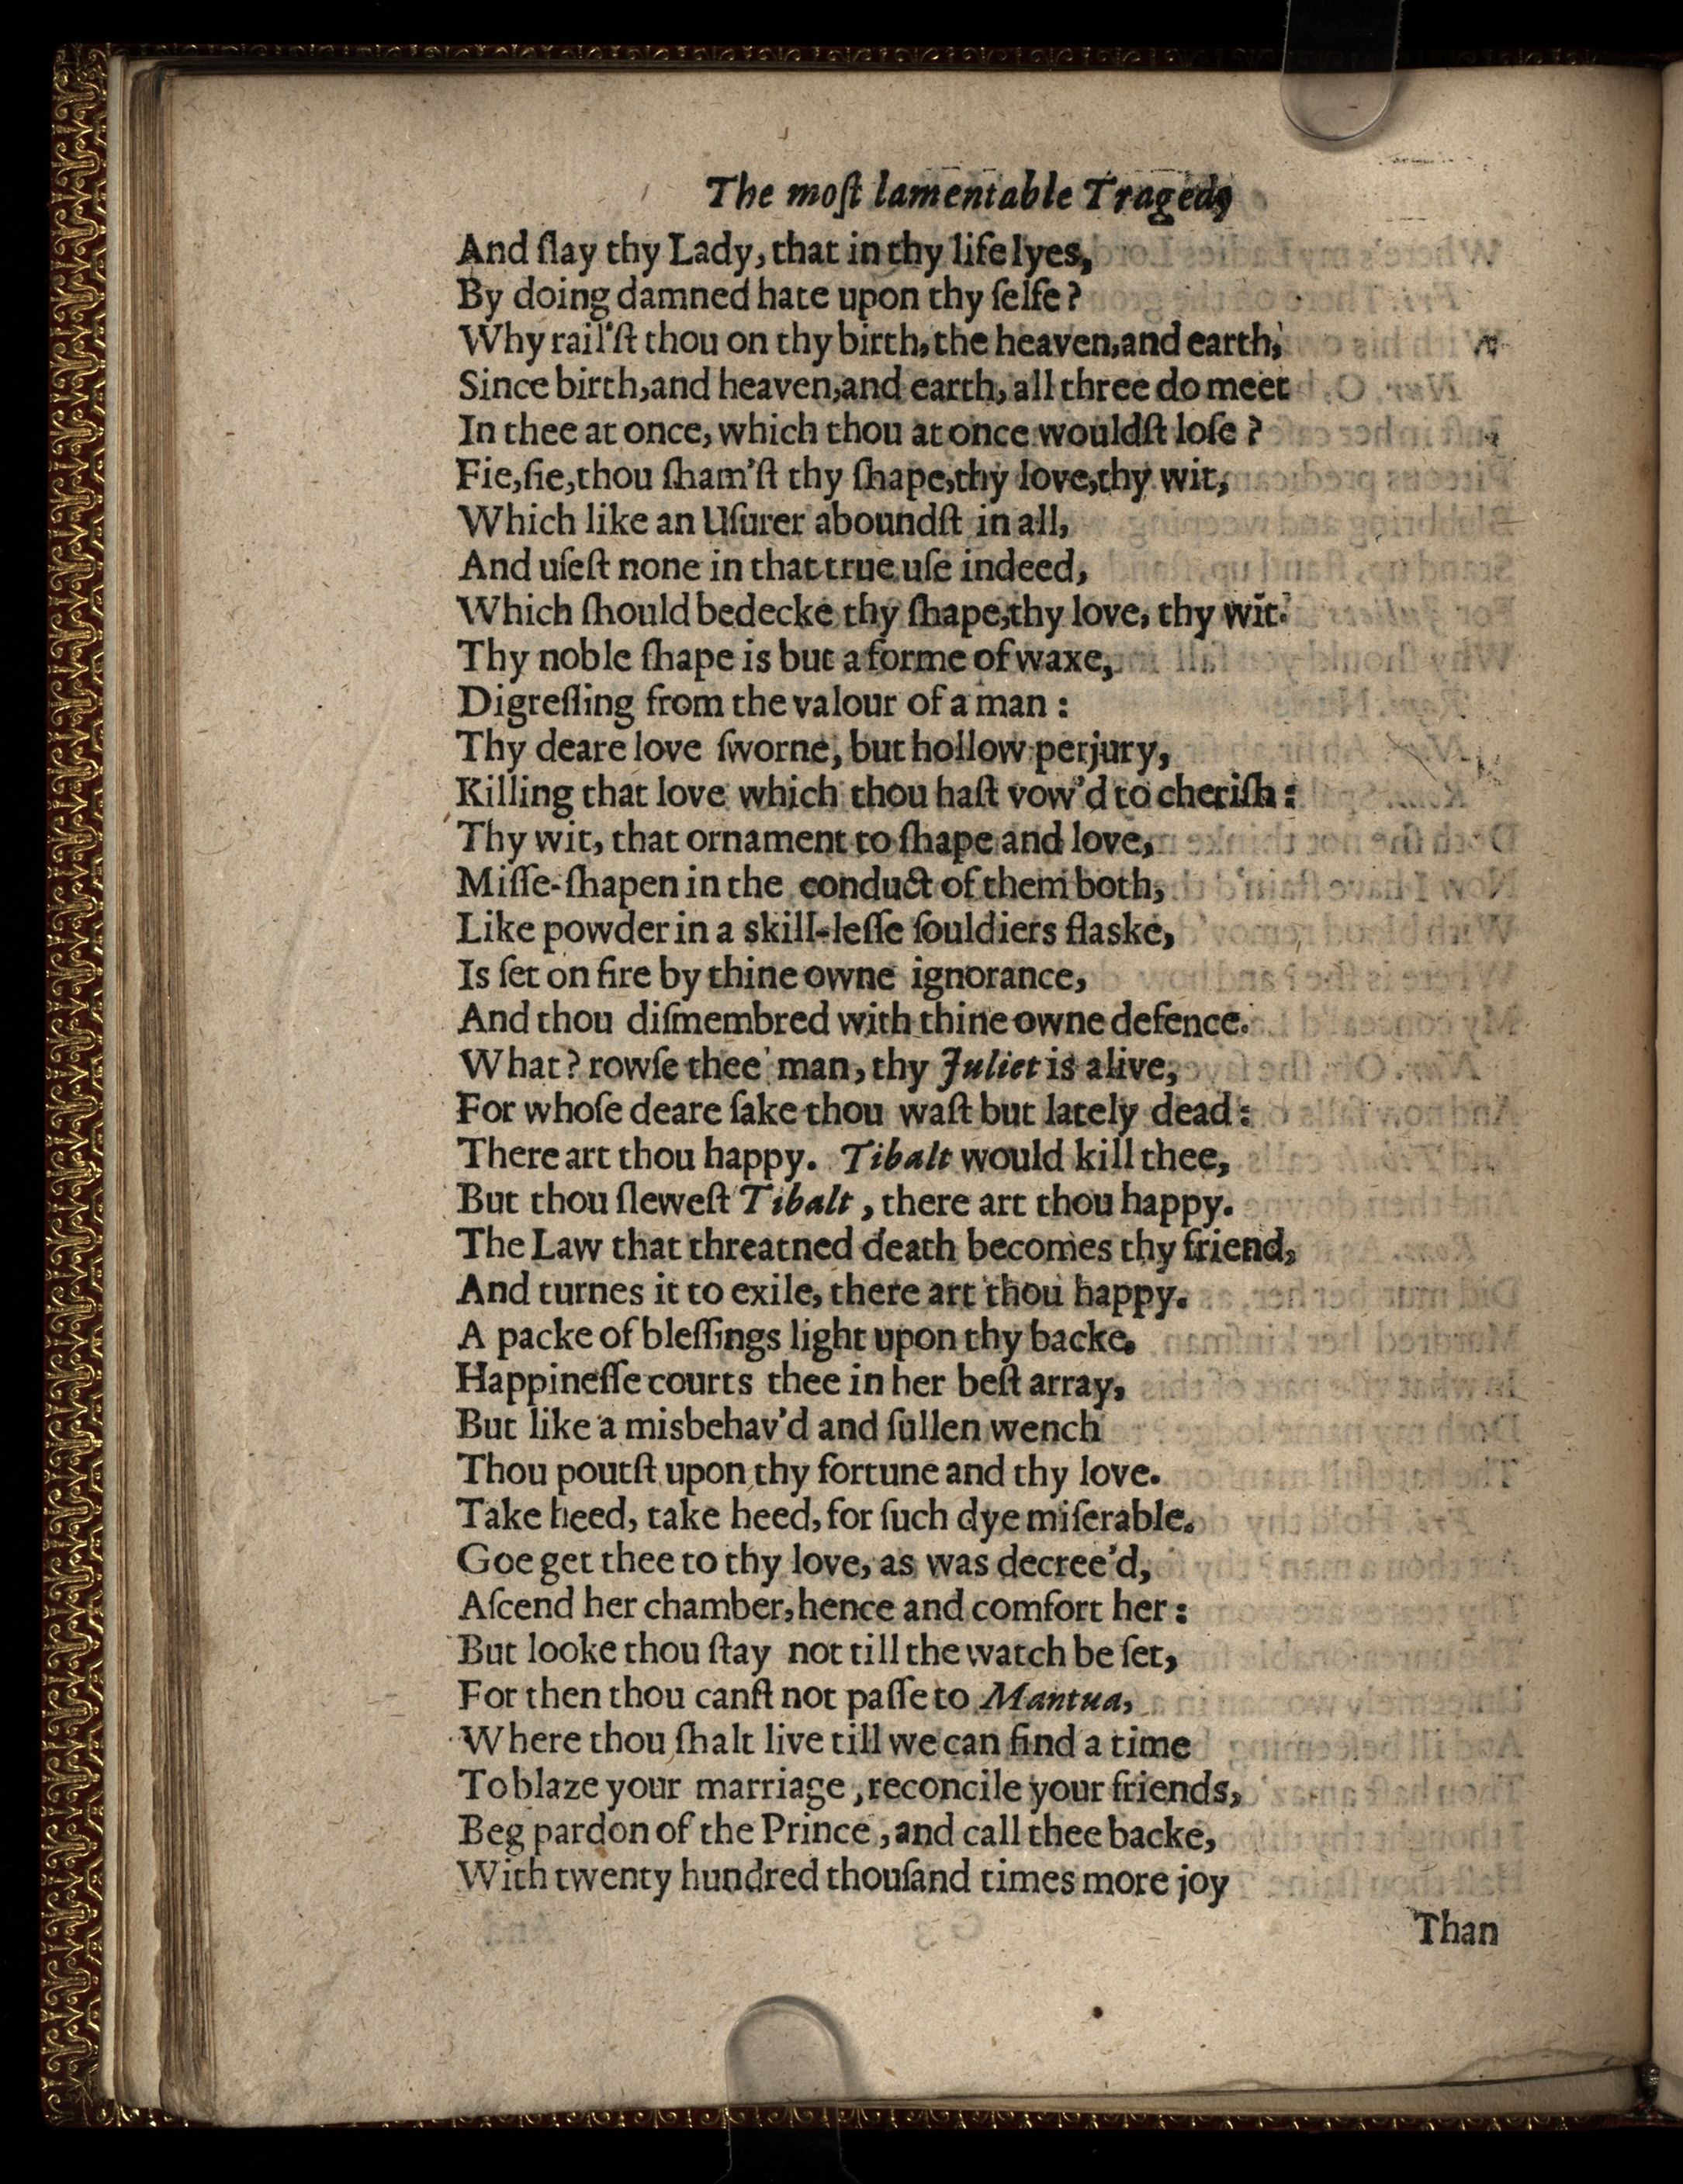 The moſt lamentable Tragedy
And ſlay thy Lady, that in thy life lyes,
By doing damned hate upon thy ſelfe?
Why rail'ſt thou on thy birth, the heaven, and earth,
Since birth, and heaven, and earth, all three do meet
In thee at once, which thou at once wouldſt loſe?
Fie, fie, thou ſham'ſt thy ſhape, thy love, thy wit,
Which like an Uſurer aboundſt in all,
And uſeſt none in that true uſe indeed,
Which ſhould bedecke thy ſhape, thy love, thy wit.
Thy noble ſhape is but a forme of waxe,
Digreſſing from the valour of a man:
Thy deare love ſworne, but hollow perjury,
Killing that love which thou haſt vow'd to cheriſh:
Thy wit, that ornament to ſhape and love,
Miſſe-ſhapen in the conduct of them both,
Like powder in a skill-leſſe ſouldiers flaske,
Is ſet on fire by thine owne ignorance,
And thou diſmembred with thine owne defence.
What? rowſe thee man, thy Juliet is alive,
For whoſe deare ſake thou waſt but lately dead:
There art thou happy. Tibalt would kill thee,
But thou ſleweſt Tibalt, there art thou happy.
The Law that threatned death becomes thy friend,
And turnes it to exile, there art thou happy.
A packe of bleſſings light upon thy backe,
Happineſſe courts thee in her beſt array,
But like a misbehav'd and ſullen wench
Thou poutſt upon thy fortune and thy love.
Take heed, take heed, for ſuch dye miſerable.
Goe get thee to thy love, as was decree'd,
Aſcend her chamber, hence and comfort her:
But looke thou ſtay not till the watch be ſet,
For then thou canſt not paſſe to Mantua,
Where thou ſhalt live till we can find a time
To blaze your marriage, reconcile your friends,
Beg pardon of the Prince, and call thee backe,
With twenty hundred thouſand times more joy
Than